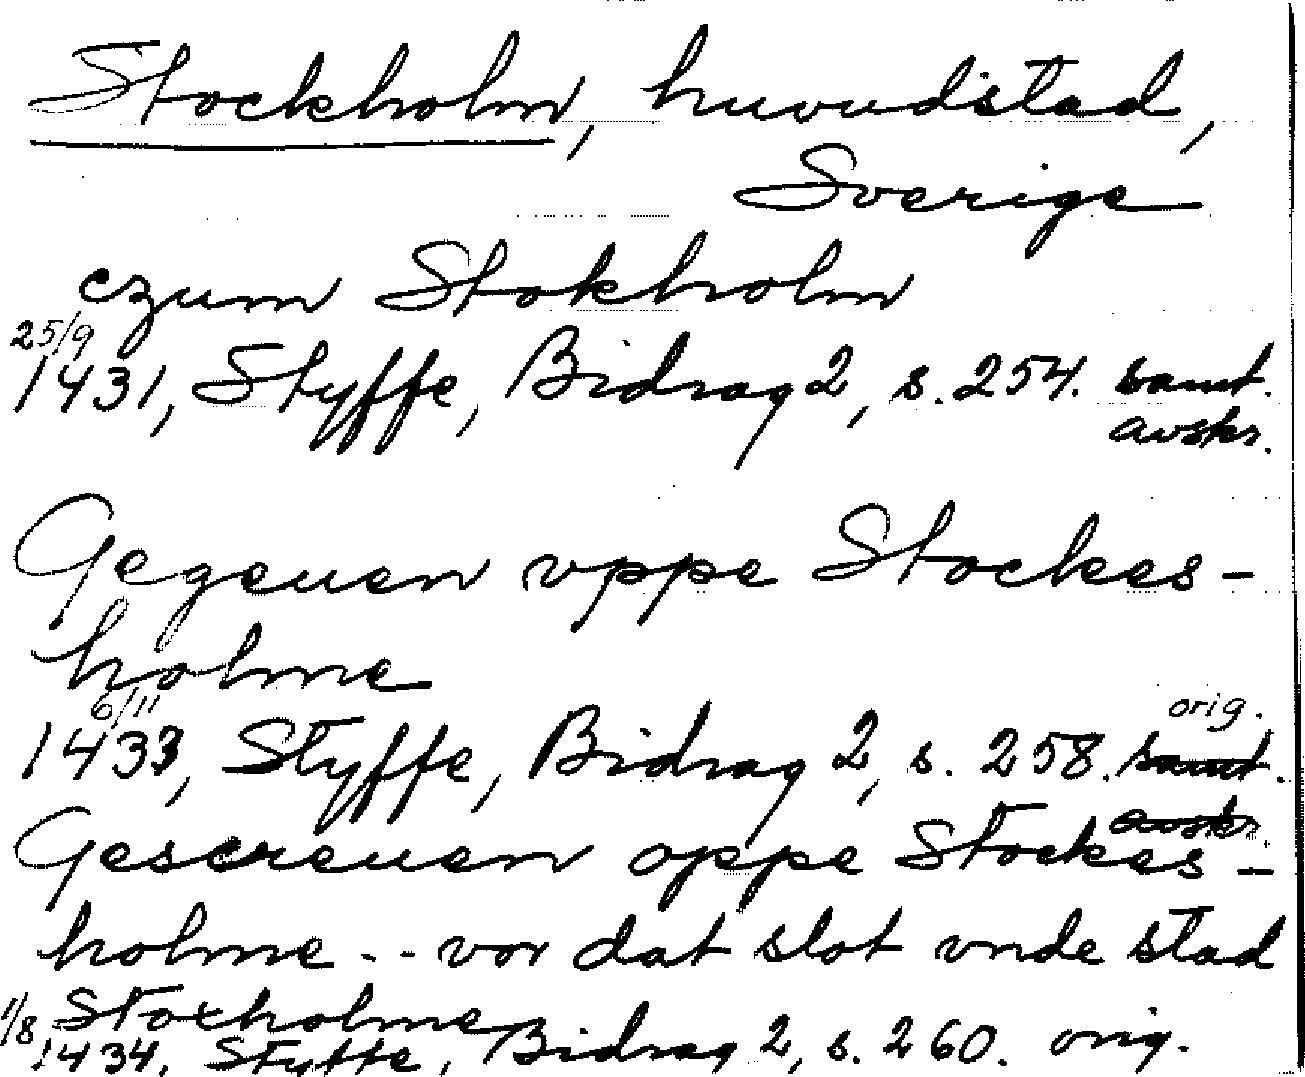 Stockholm, huvudstad,
Sverige
czum Stokholm
25/9
1431, Styffe, Bidrag 2, s. 254. samt.
avskr.
Gegeuen vppe Stockes-
holme
6/11 orig.
1433, Styffe, Bidrag 2, s. 258. samt.
avskr.
Gescreuen oppe Stockes-
holme - - vor dat slot vnde stad
Stoxholme
1/8
1434, Styffe, Bidrag 2, s. 260. orig.